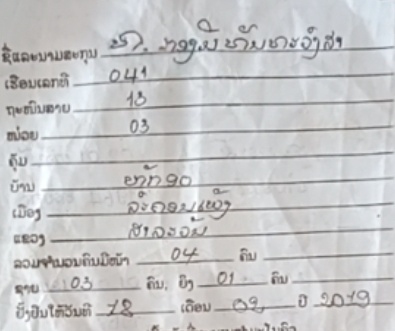 ຊື່ແລະນາມສະກຸນ ທ.
ເຮືອນເລກທີ 041
ຖະໜົນສາຍ 13
ໜ່ວຍ 03
ຄຸ້ມ
ບ້ານ ຫຼັກ 90
ເມືອງ ລະຄອນເພັງ
ແຂວງ ສາລະວັນ
ລວມຈຳນວນຄົນມີໜ້າ 04 ຄົນ
ຊາຍ 03 ຄົນ, ຍິງ 01 ຄົນ
ຢັ້ງຢືນໃຫ້ວັນທີ 18 ເດືອນ 09 ປີ 2019